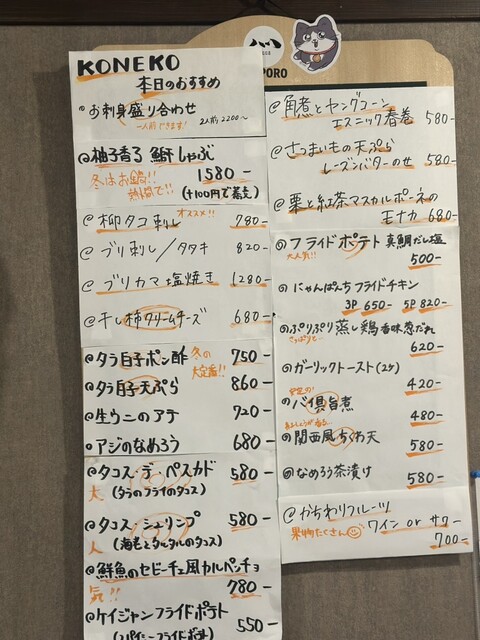 KONEKO
本日のおすすめ
お刺身盛り合わせ
一人前できます! 2人前 2200〜
柚子香る 鰤しゃぶ
冬はお鍋!!
熱燗で!! 1580-
(+100円で雑炊)
オススメ!!
@柳タコ刺し 780-
@ブリ刺し/タタキ 820-
@ブリカマ塩焼き 1280-
@干し柿クリームチーズ 680-
@タラ白子ポン酢 750-
冬の大定番!!
@タラ白子天ぷら 860-
@生ウニのアテ 720-
アジのなめろう 680-
@タコス・デ・ペスカド 580-
大 (タラのフライのタコス)
@タコス・シュリンプ 580-
人 (海老とタルタルのタコス)
@鮮魚のセビーチェ風カルパッチョ
気!! 780-
@ケイジャンフライドポテト
(スパイシーフライドポテト) 550-
PORO
@角煮とヤングコーン
エスニック春巻 580-
@さつまいもの天ぷら
レーズンバターのせ 580-
@栗と紅茶マスカルポーネの
モナカ 680-
フライドポテト 真鯛だし塩
大人気!! 500-
にゃんぱんちフライドチキン
3P 650- 5P 820-
ぷりぷり蒸し鶏香味葱だれ
さっぱりと 620-
ガーリックトースト(2ケ)
420-
バ倶旨煮
480-
関西風ちくわ天
580-
なめろう茶漬け
580-
@かちわりフルーツ
果物たくさん ワイン or サワー
700-